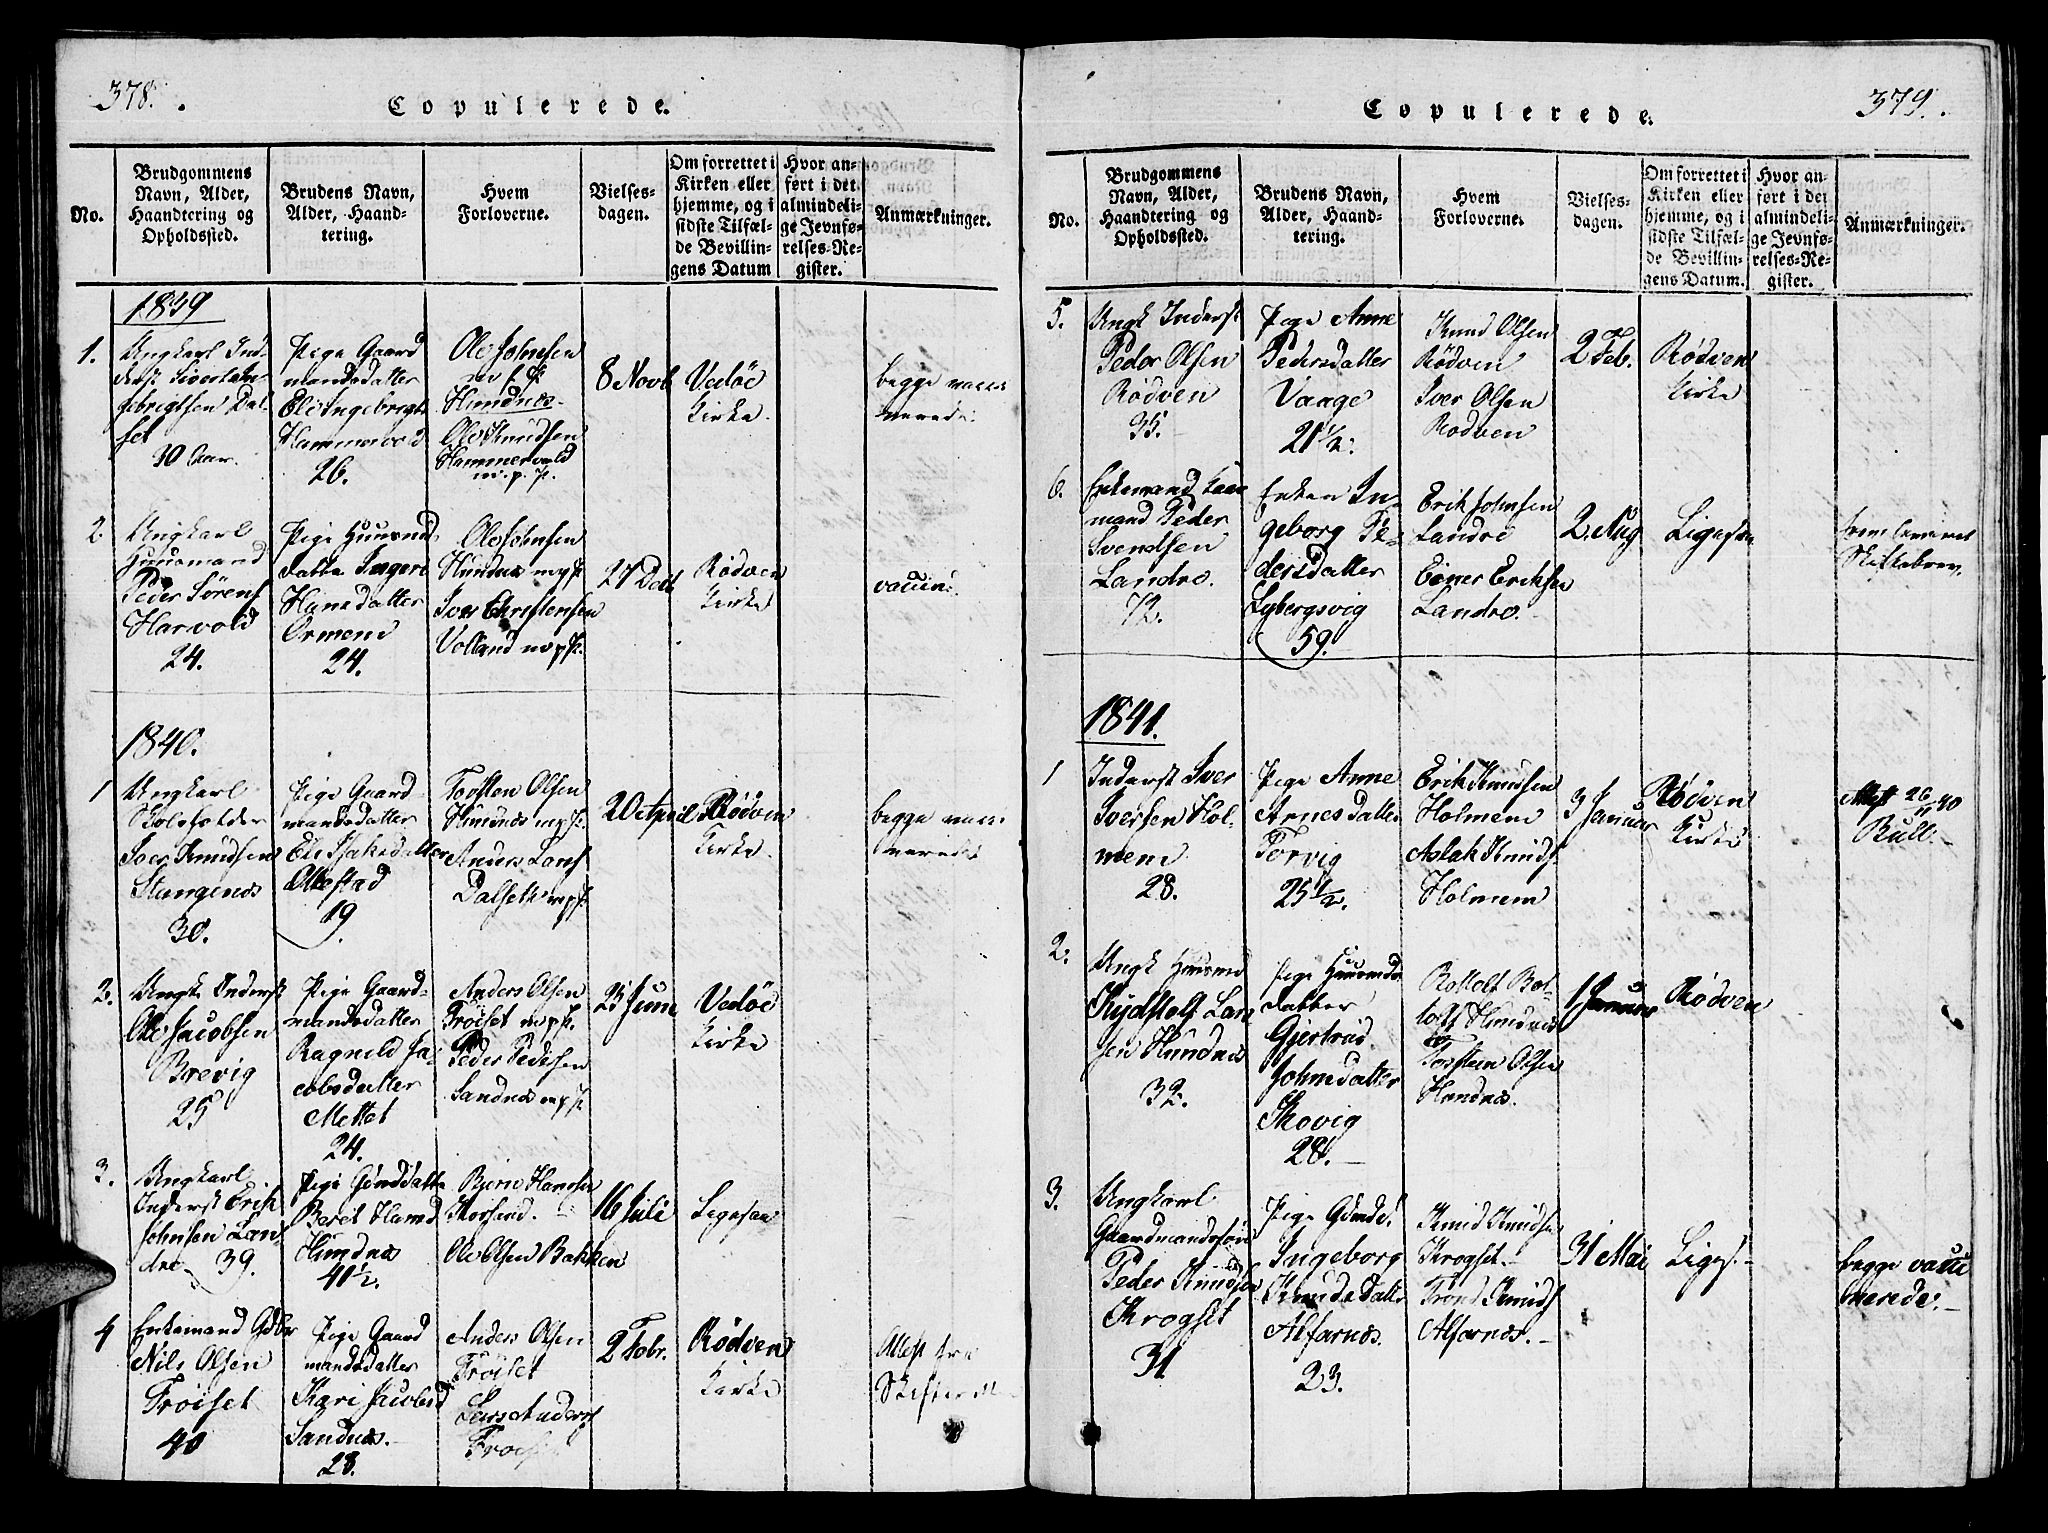 378.
Copulerede.
No.
Brudgommens
Navn, Alder,
Haandtering og
Opholdssted.
Brudens Navn,
Alder, Haand-
tering.
Hvem
Forloverne.
Vielses-
dagen.
Om forrettet i
Kirken eller
hjemme, og i
sidste Tilfæl-
de Bevillin-
gens Datum
Hvor an-
ført i det
almindeli-
ge Jevnfø-
relses-Re-
gister.
Anmærkninger.
1839
1.
Ungkarl Ind-
derst Sivert
Dal-
set
30 Aar.
Pige Gaard
mandsdatter
Eli Ingebrigts
Hammervold
26.
Ole Johnsen
Hundnes
Ole Knudsen
Hammervold
m. p. P.
8 Novb
Vedøe
Kirke.
begge vacci
nerede.
2.
Ungkarl
Huusmand
Peder Sørens
Harvold
24.
Pige Huusmd
datter Ingeri
Hansdatter
Ormem
24.
Ole Johnsen
Hundnes mpP.
Iver Christensen
Volland mpP.
27 Dec
Rødven
Kirke
vaccin.
1840.
1
Ungkarl
Skoleholder
Iver Knudsen
Stangenes
30.
Pige Gaard-
mandsdatter
Eli
Ollestad
19.
Torsten Olsen
Hundnes mpP.
Anders Lars
Dalseth mpP.
20 April
Rødven
Kirke.
begge vacci
nerede
2.
Ungk. Inderst
Ole Jacobsen
Brevig
25
Pige Gaard-
mandsdatter
Ragnild Ja-
cobsdatter
Mettet
24.
Anders Olsen
Trøiset mpP.
Peder Pedersen
Sandnes mpP
25 Juni
Vedøe
Kirke
3.
Ungkarl
Inderst Erik
Johnsen Lan-
dre 39.
Pige Gmdsdatte
Beret
Hundnes
41½.
Bjørn Hansen
Ole Olsen Bakken
16 Juli
Ligesaa
4
Enkemand Gdbr
Nils Olsen
Trøiset
40
Pige Gaard
mandsdatter
Kari Jacobsd
Sandnes.
28.
Anders Olsen
Trøiset
Lars Anders
Trøiset
2 Febr.
Rødven
Kirke
Attest fra
Skifteret
379.
Copulerede.
No.
Brudgommens
Navn, Alder,
Haandtering og
Opholdssted.
Brudens Navn,
Alder, Haand-
tering.
Hvem
Forloverne.
Vielses-
dagen.
Om forrettet i
Kirken eller
hjemme, og i
sidste Tilfæl-
de Bevillin-
gens Datum.
Hvor an-
ført i det
almindeli-
ge Jevnfø-
relses-Re-
gister.
Anmærkninger.
5.
Ungk Inderst
Peder Olsen
Rødven
35.
Pige Anne
Pedersdatter
Vaage
21½.
Knud Olsen
Rødven
Iver Olsen
Rødven
2 Feb.
Rødven
Kirke
6.
Enkemand
mand Peder
Svendsen
Landre.
72.
Enken In-
geborg Pe-
dersdatter
Lybergsvig
59.
Erik Johnsen
Landre
Einer Eriksen
Landre.
2. Aug
Ligesaa
Skiftebrev.
1841.
1
Inderst Iver
Iversen Hol-
mem
28.
Pige Anne
Arnesdatter
Torvig
25½.
Erik Knudsen
Holmem
Aslak Knuds
Holmem
3 Januar
Rødven
Kirke
Attest 26/11 40
Bull.
2.
Ungk Huusmd
Kydstolf Lar
sen Hundnes
32.
Pige Huusmds
datter
Gjertrud
Johnsdatter
Skovig
28.
Bottolf Bot-
tolfs Hundnes
Torstein Olsen
Hundnes.
1 Januar
Rødven
3.
Ungkarl
Gaardmandssøn
Peder Knudsen
Krogset
31
Pige Gmds.
Ingeborg
Knudsdatter
Alfarnes.
23.
Knud Knudsen
Krogset.
Trond Knuds
Alfarnes.
31 Mai
Liges.
begge vacci
nerede.